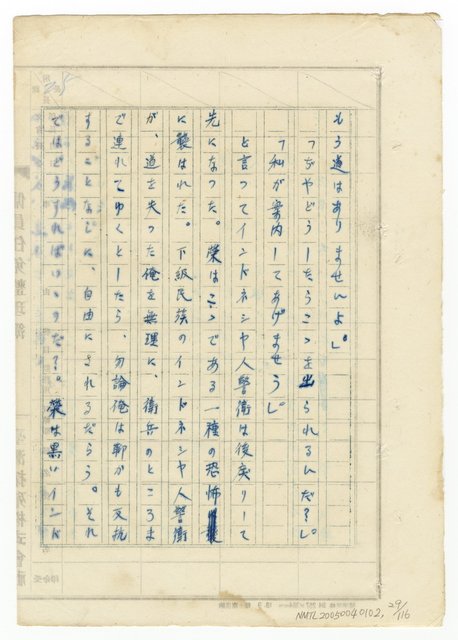 もう道はありませんよ」
「ぢやどうしたらこゝを出られるんだ?」
「私が案内してあげませう」
と言つてインドネシヤ人警衛は後戻りして
先になつた。榮はこゝである一種の恐怖
に襲はれた。下級民族のインドネシヤ人警衛
が、道を失つた俺を無理に、衛兵のところま
で連れてゆくとしたら、勿論俺は聊かも反抗
することなしに、自由にされるだらう。それ
ではどうすればいゝのだ?。榮は黒いインド
NMTL20050040102, 29/116